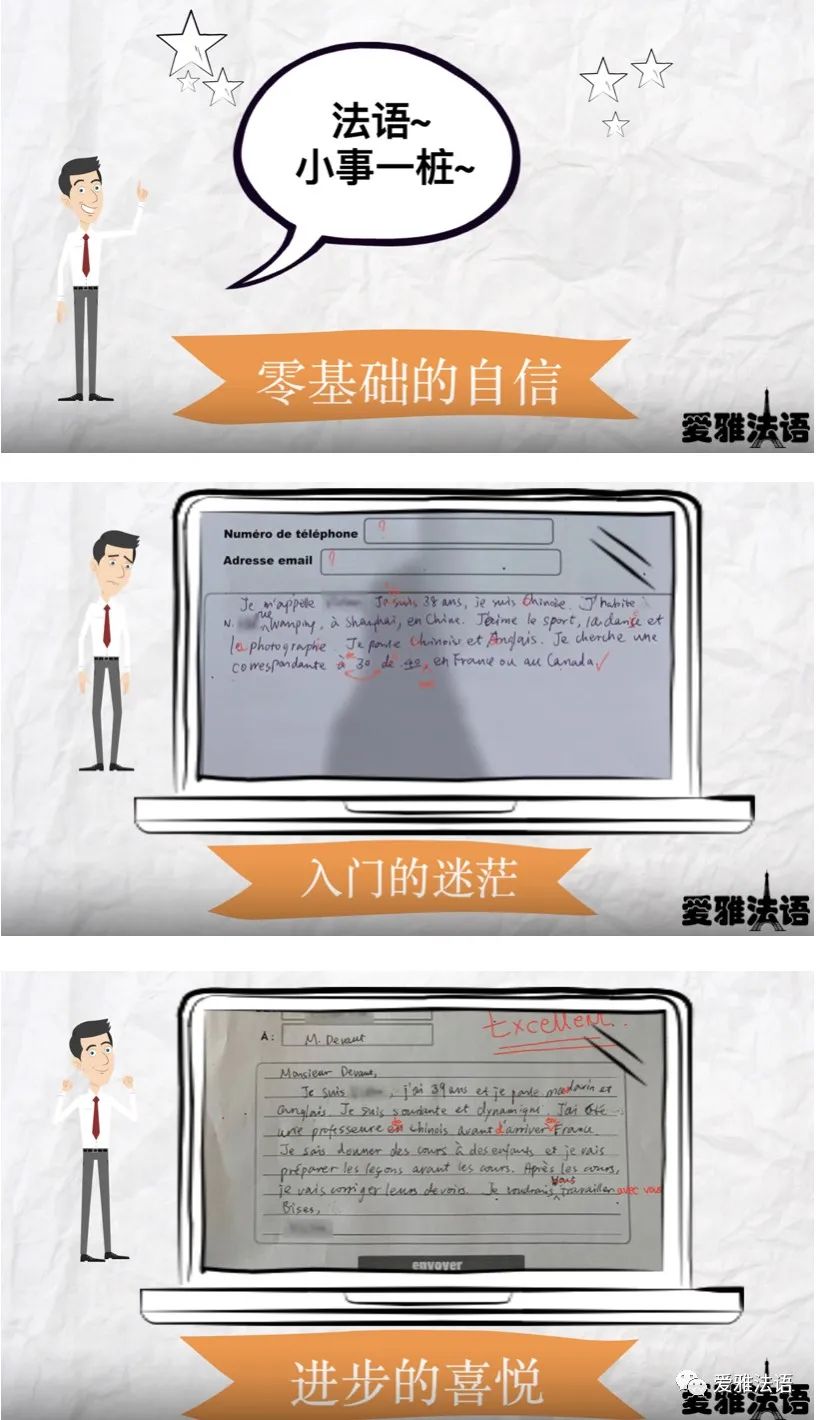 法语~
小事一桩~
零基础的自信
爱雅法语
Numéro de téléphone ?
Adresse email ?
Je m'appelle Je suis 38 ans, je suis Chinoise. J'habite
N. rue Wanping, à Shanghai, en Chine. J'aime le sport, la danse et
la photographie. Je parle Chinois et Anglais. Je cherche une
correspondante à 30 de 40, en France ou au Canada
入门的迷茫
爱雅法语
Excellent.
À: M. Devaut
Monsieur Devaut,
Je suis , j'ai 39 ans et je parle mandarin et
anglais. Je suis souriante et dynamique. J'ai été
une professeure en chinois avant d'arriver France.
Je sais donner des cours à des enfants et je vais
préparer les leçons avant les cours. Après les cours,
je vais corriger leurs devoirs. Je voudrais travailler avec vous
Bises,
envoyer
进步的喜悦
爱雅法语
爱雅法语